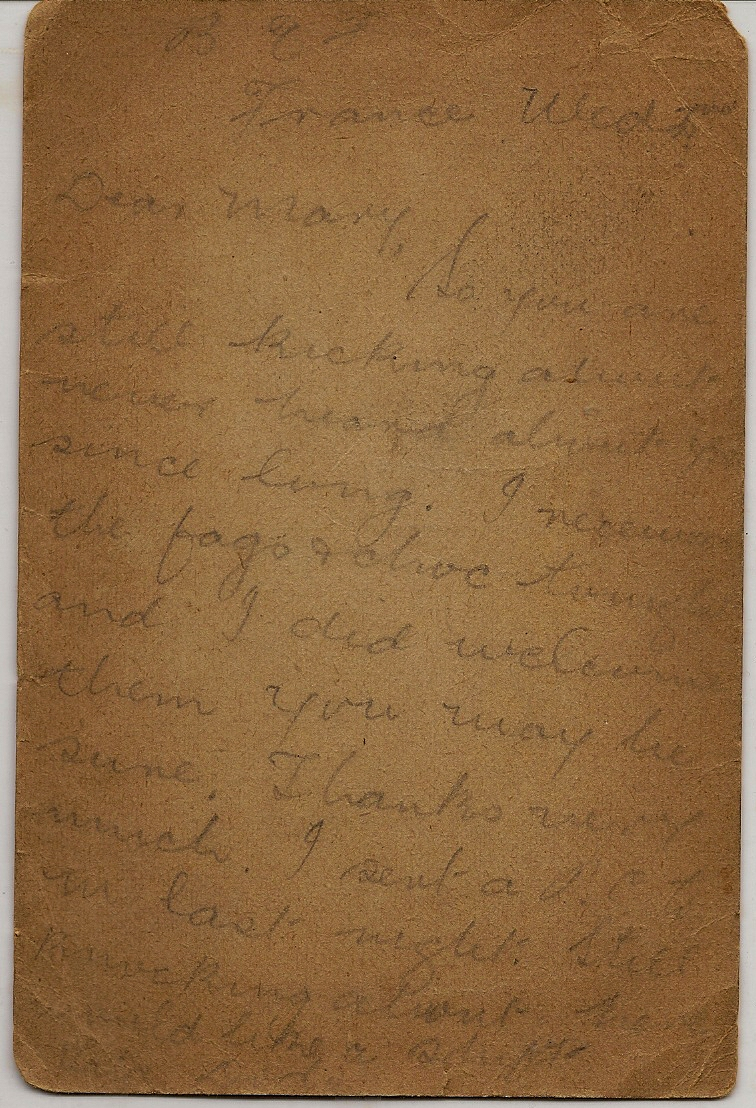 B E F
France Wed
Dear Mary,
So you are
still kicking about
never heard about
since long. I received
the fags & choc
and I did welcome
them you may be
sure. Thanks very
much. I sent a
in last night. Still
knocking about here
would like a